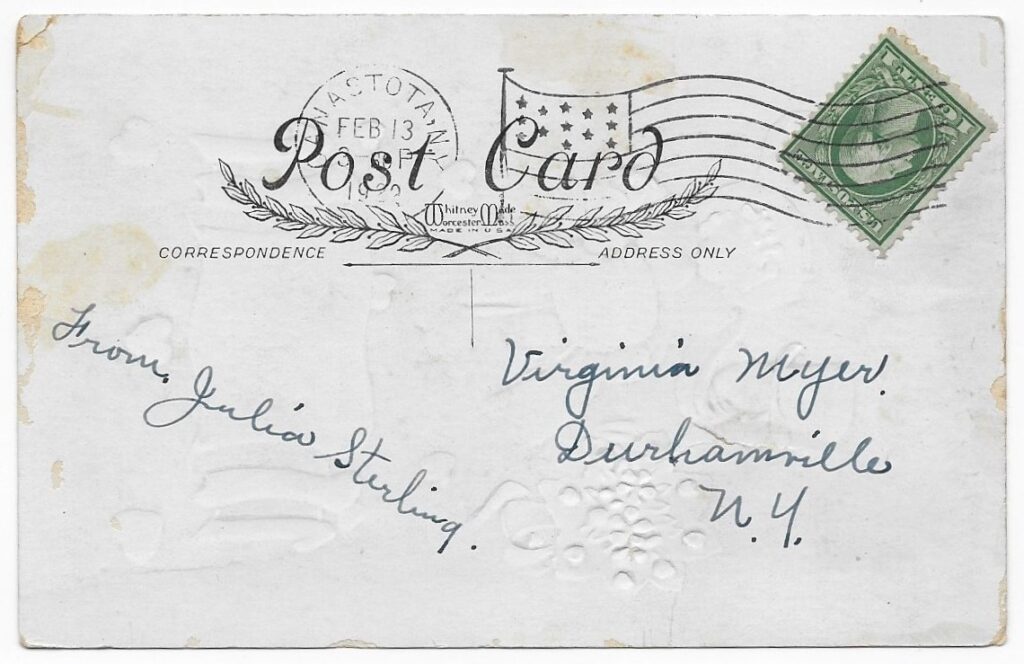 NASTOTA, N.Y.
FEB 13
P
192
Post Card
Whitney Made
Worcester Mass
MADE IN U.S.A.
CORRESPONDENCE
ADDRESS ONLY
From, Julia Sterling.
Virginia Myer.
Durhamville
N.Y.